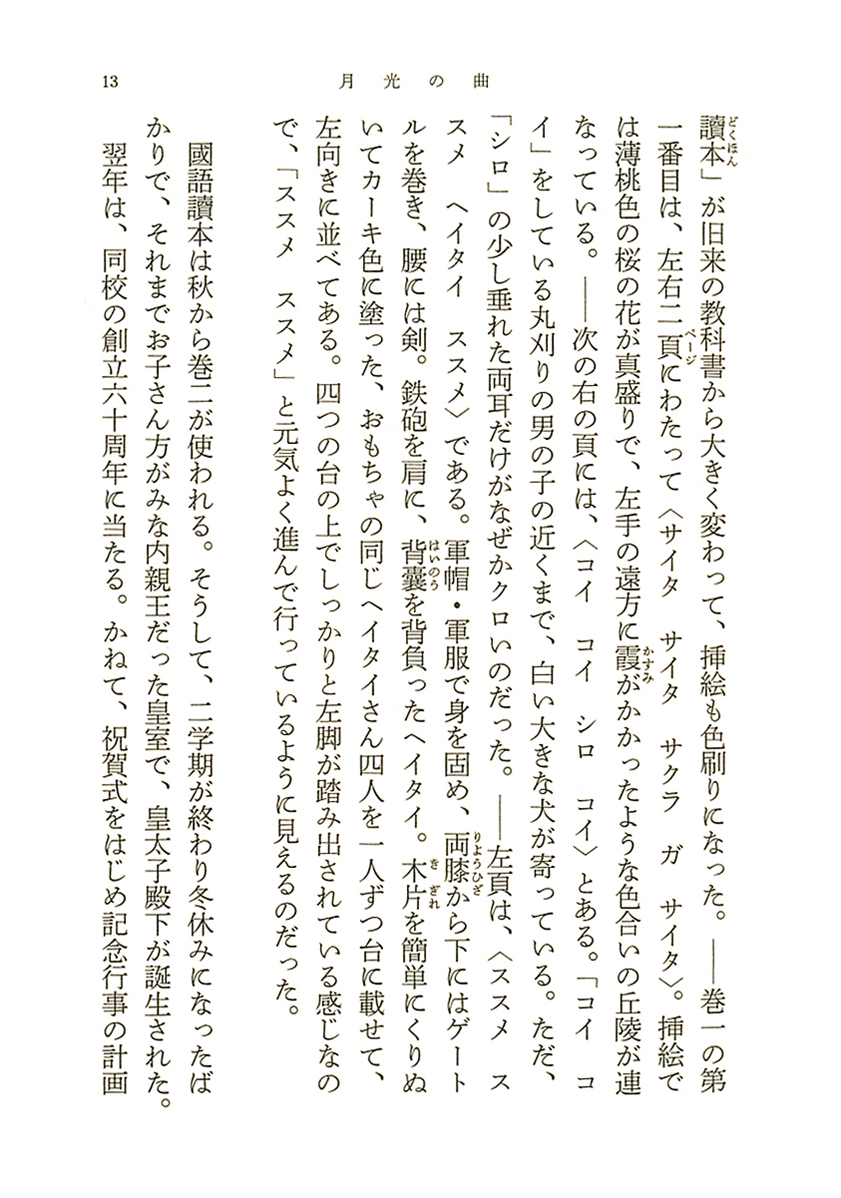 13
月光の曲
讀本」が旧来の教科書から大きく変わって、挿絵も色刷りになった。――巻一の第
一番目は、左右二頁にわたって〈サイタ　サイタ　サクラ　ガ　サイタ〉。挿絵で
は薄桃色の桜の花が真盛りで、左手の遠方に霞がかかったような色合いの丘陵が連
なっている。――次の右の頁には、〈コイ　コイ　シロ　コイ〉とある。「コイ　コ
イ」をしている丸刈りの男の子の近くまで、白い大きな犬が寄っている。ただ、
「シロ」の少し垂れた両耳だけがなぜかクロいのだった。――左頁は、〈ススメ　ス
スメ　ヘイタイ　ススメ〉である。軍帽・軍服で身を固め、両膝から下にはゲート
ルを巻き、腰には剣。鉄砲を肩に、背嚢を背負ったヘイタイ。木片を簡単にくりぬ
いてカーキ色に塗った、おもちゃの同じヘイタイさん四人を一人ずつ台に載せて、
左向きに並べてある。四つの台の上でしっかりと左脚が踏み出されている感じなの
で、「ススメ　ススメ」と元気よく進んで行っているように見えるのだった。
國語讀本は秋から巻二が使われる。そうして、二学期が終わり冬休みになったば
かりで、それまでお子さん方がみな内親王だった皇室で、皇太子殿下が誕生された。
翌年は、同校の創立六十周年に当たる。かねて、祝賀式をはじめ記念行事の計画